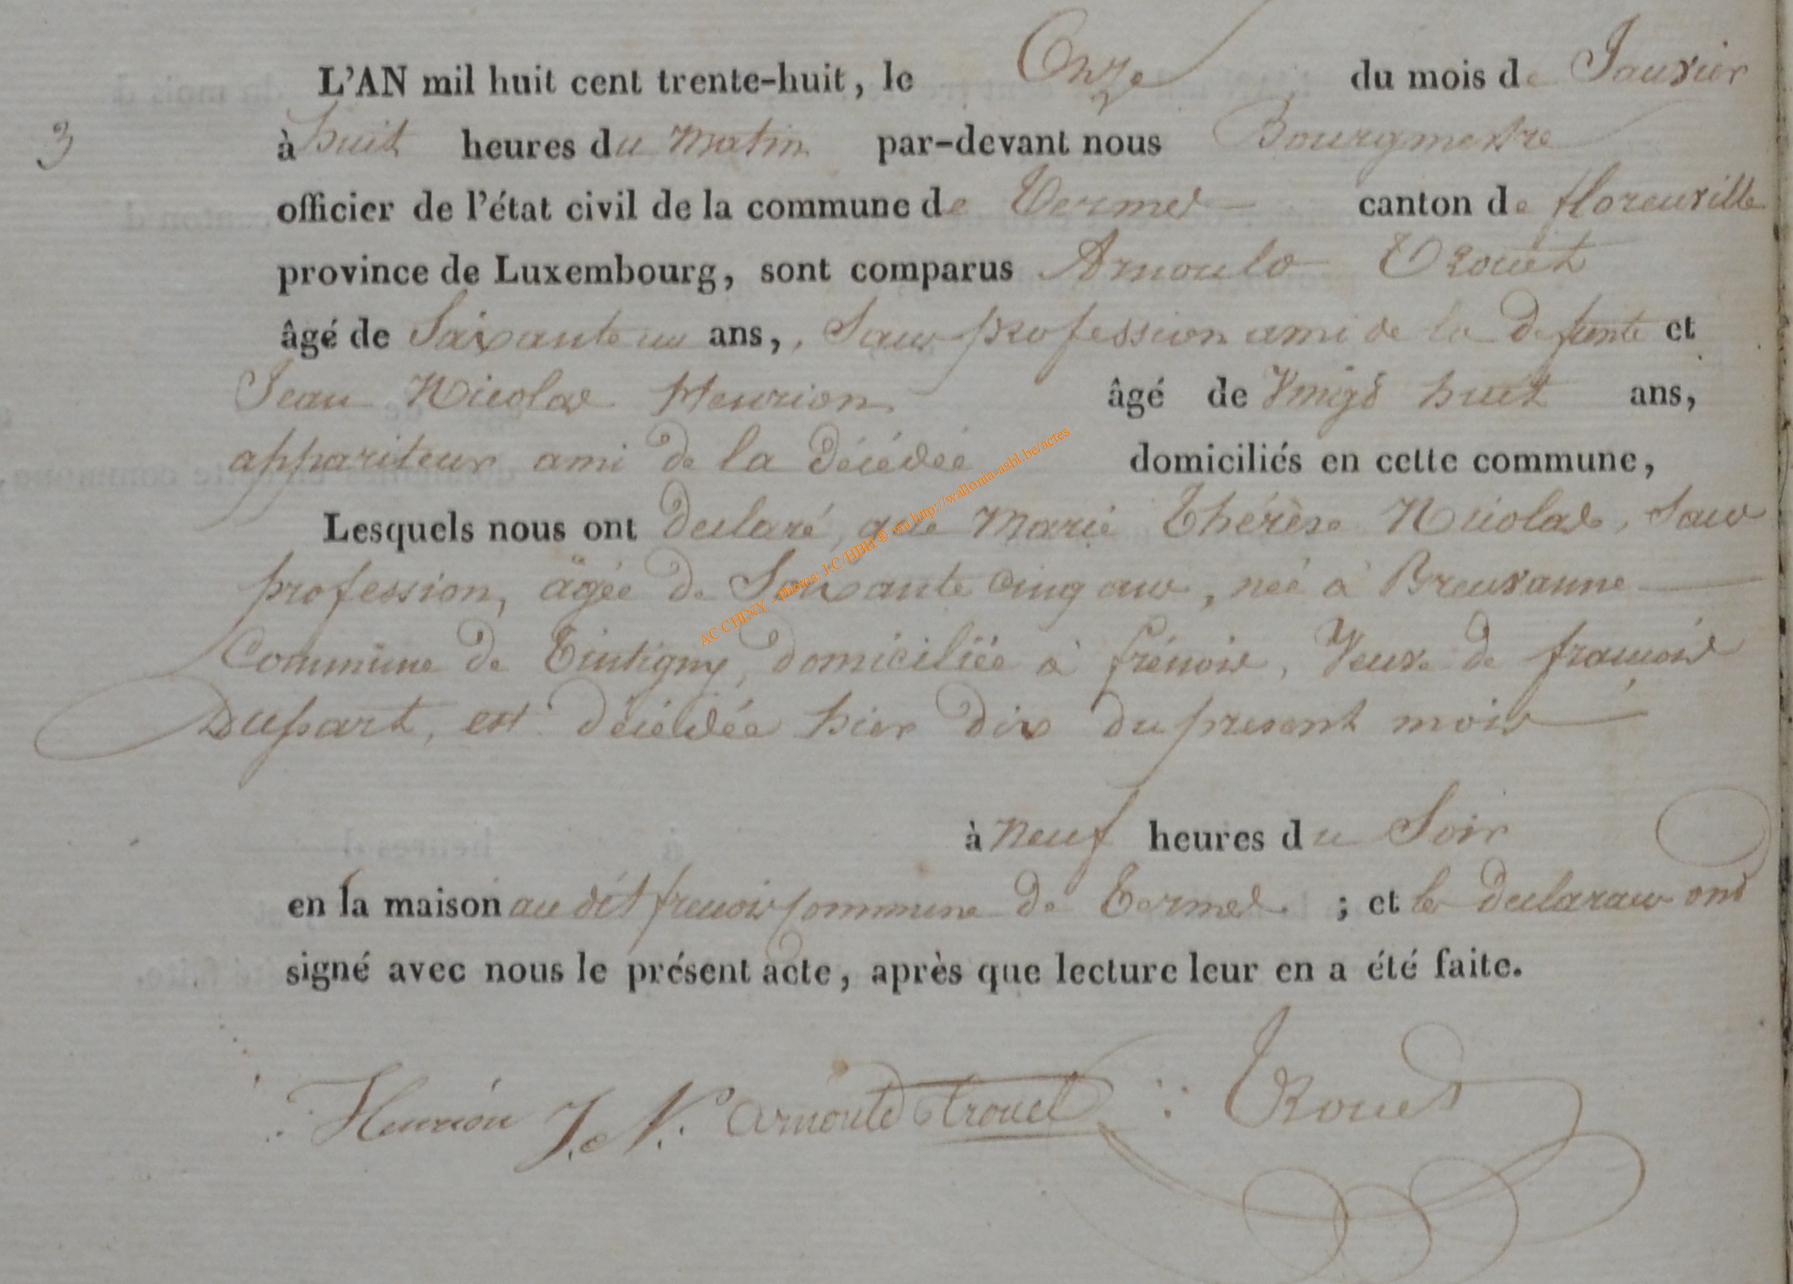 L'AN mil huit cent trente-huit, le Onze du mois de Janvier
3 à huit heures du matin par-devant nous Bourgmestre
officier de l'état civil de la commune de Termes canton de florenville
province de Luxembourg, sont comparus Arnould Trouet
âgé de Soixante un ans, Sans profession ami de la défunte et
Jean Nicolas Henrion âgé de Vingt huit ans,
appariteur ami de la décédée domiciliés en cette commune,
Lesquels nous ont declaré, que Marie Thérèse Nicolas, Sans
profession, âgée de Soixante cinq ans, née à Breuvanne
Commune de Tintigny, domiciliée à frénois, Veuve de françois
Dupart, est décédée hier dix du present mois
à neuf heures du Soir
en la maison au dit frenois commune de Termes ; et les declarans ont
signé avec nous le présent acte, après que lecture leur en a été faite.
Henrion J. N. arnould trouet Trouet
AC CHINY - photos J-C HDH © via http://wallonia-asbl.be/actes